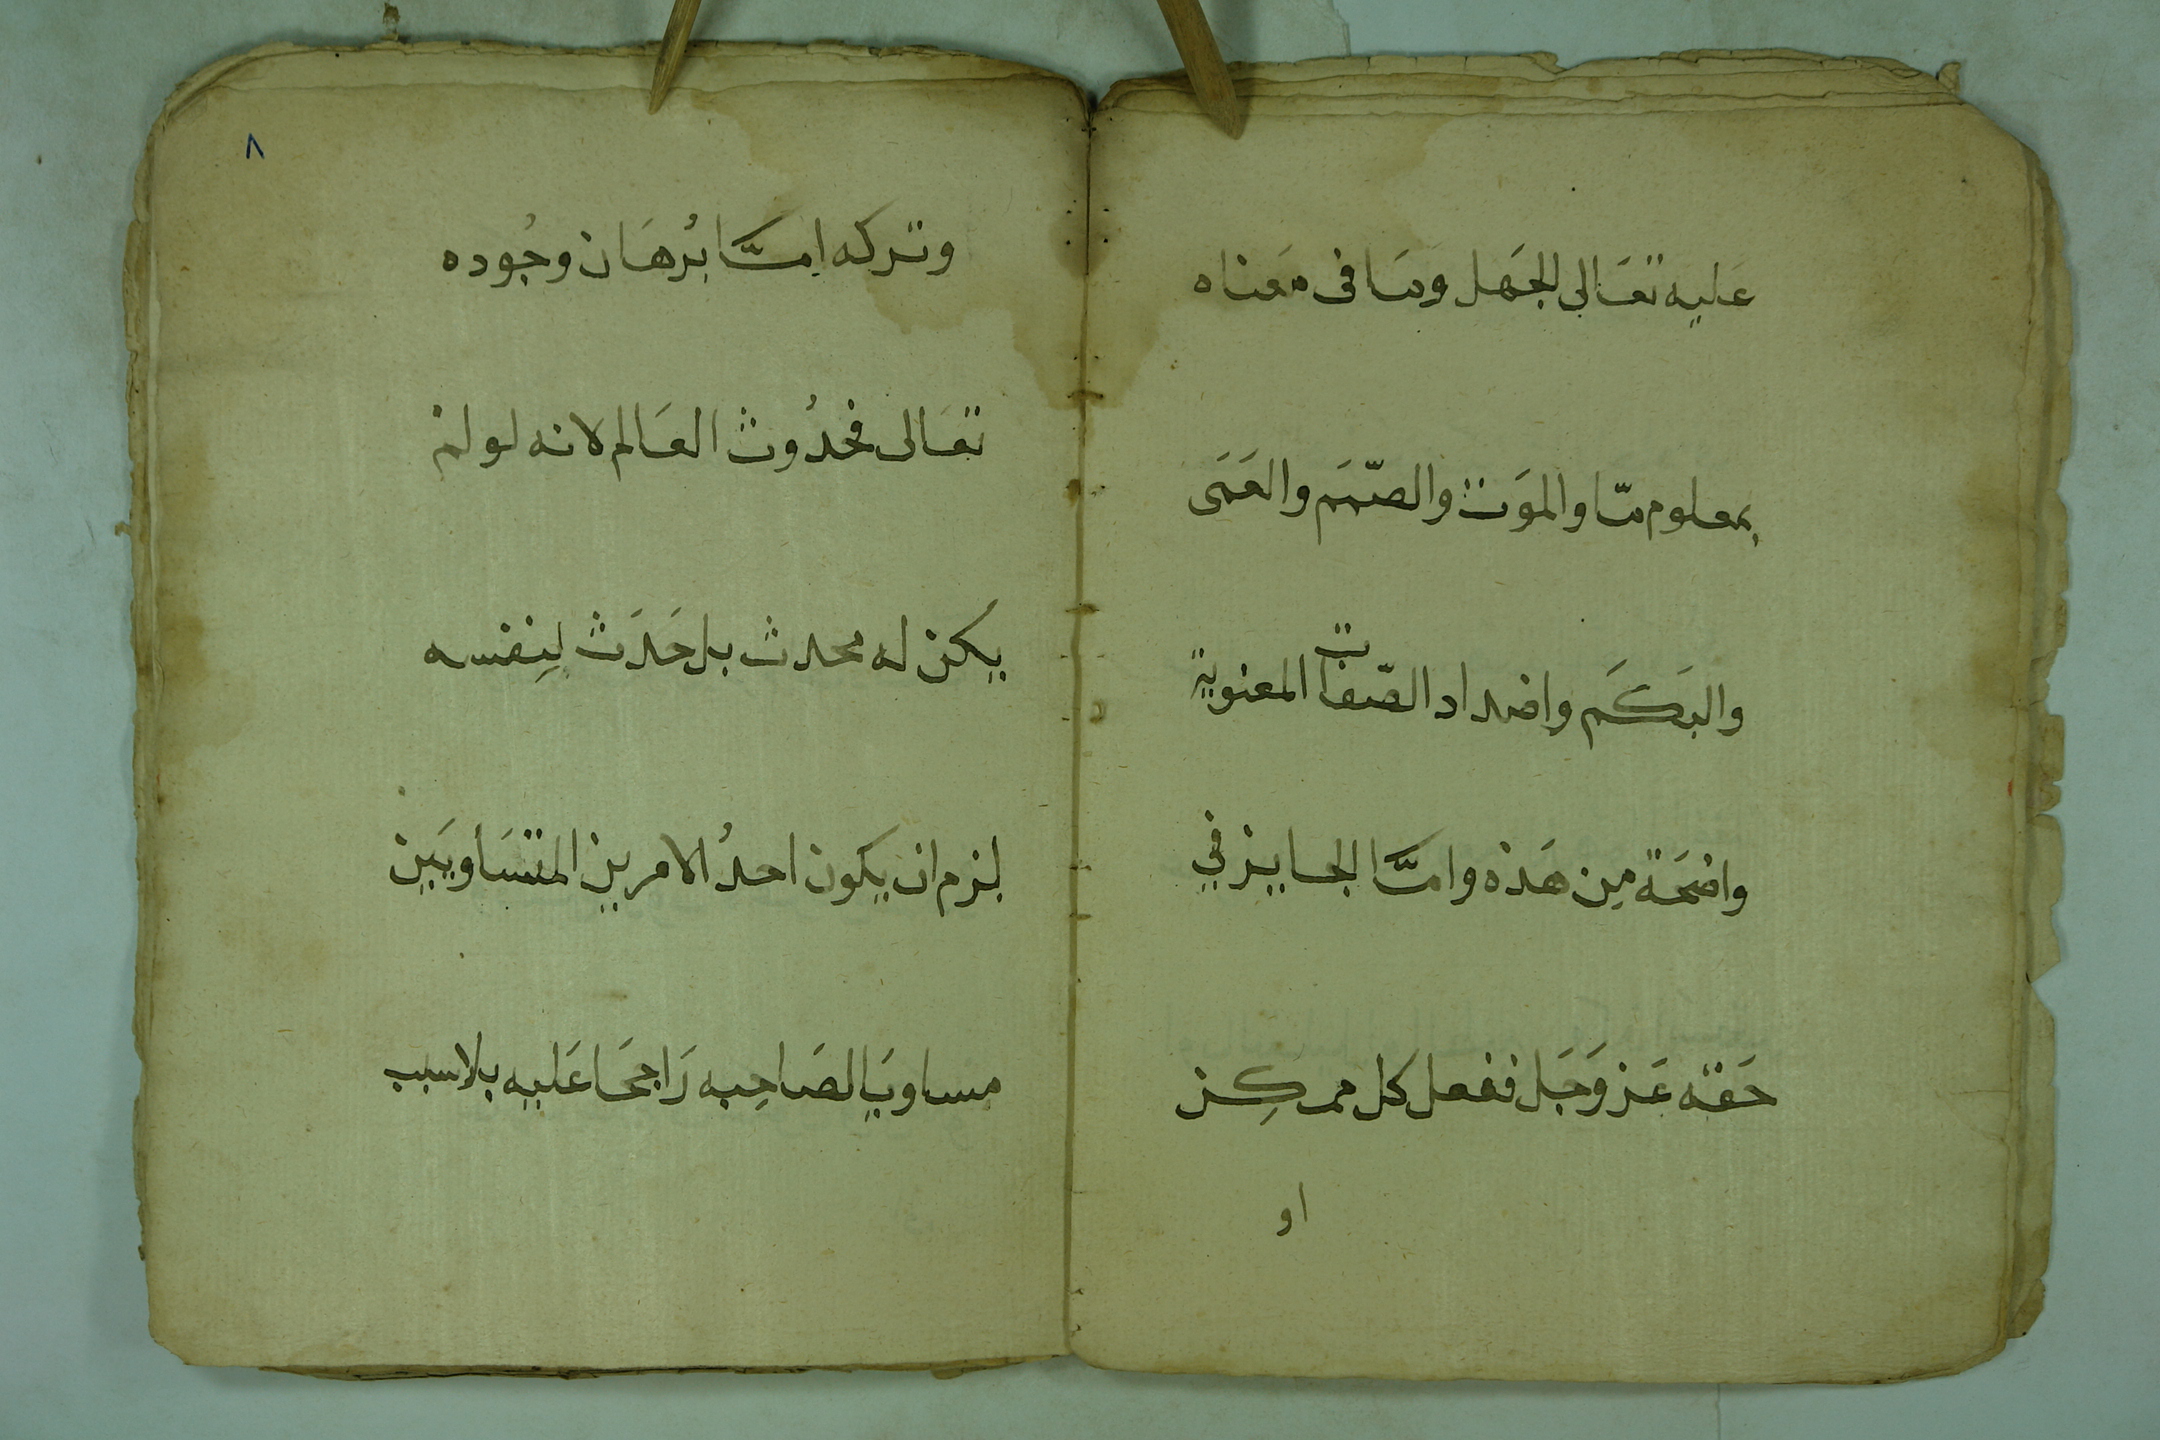 عَليه تعَالى الجَهل وَمَا فى مَعناه
بمعلوم مّا والموَت والصّمَم والعَمَى
والبَكَم واضداد الصّفات المعنوية
واضحَة مِن هَذه وامَّا الجايز في
حَقه عَز وَجَل ففعل كل ممكِن
او
٨
وتركه امَّا بُرهَان وجُوده
تعَالى فحدُوث العَالم لانه لو لم
يكن له محدث بل حَدَث لِنفسه
لزم ان يكون احدُ الامرين المتسَاويَين
مساويَا لصَاحِبه رَاجحَا عَليه بلا سبب